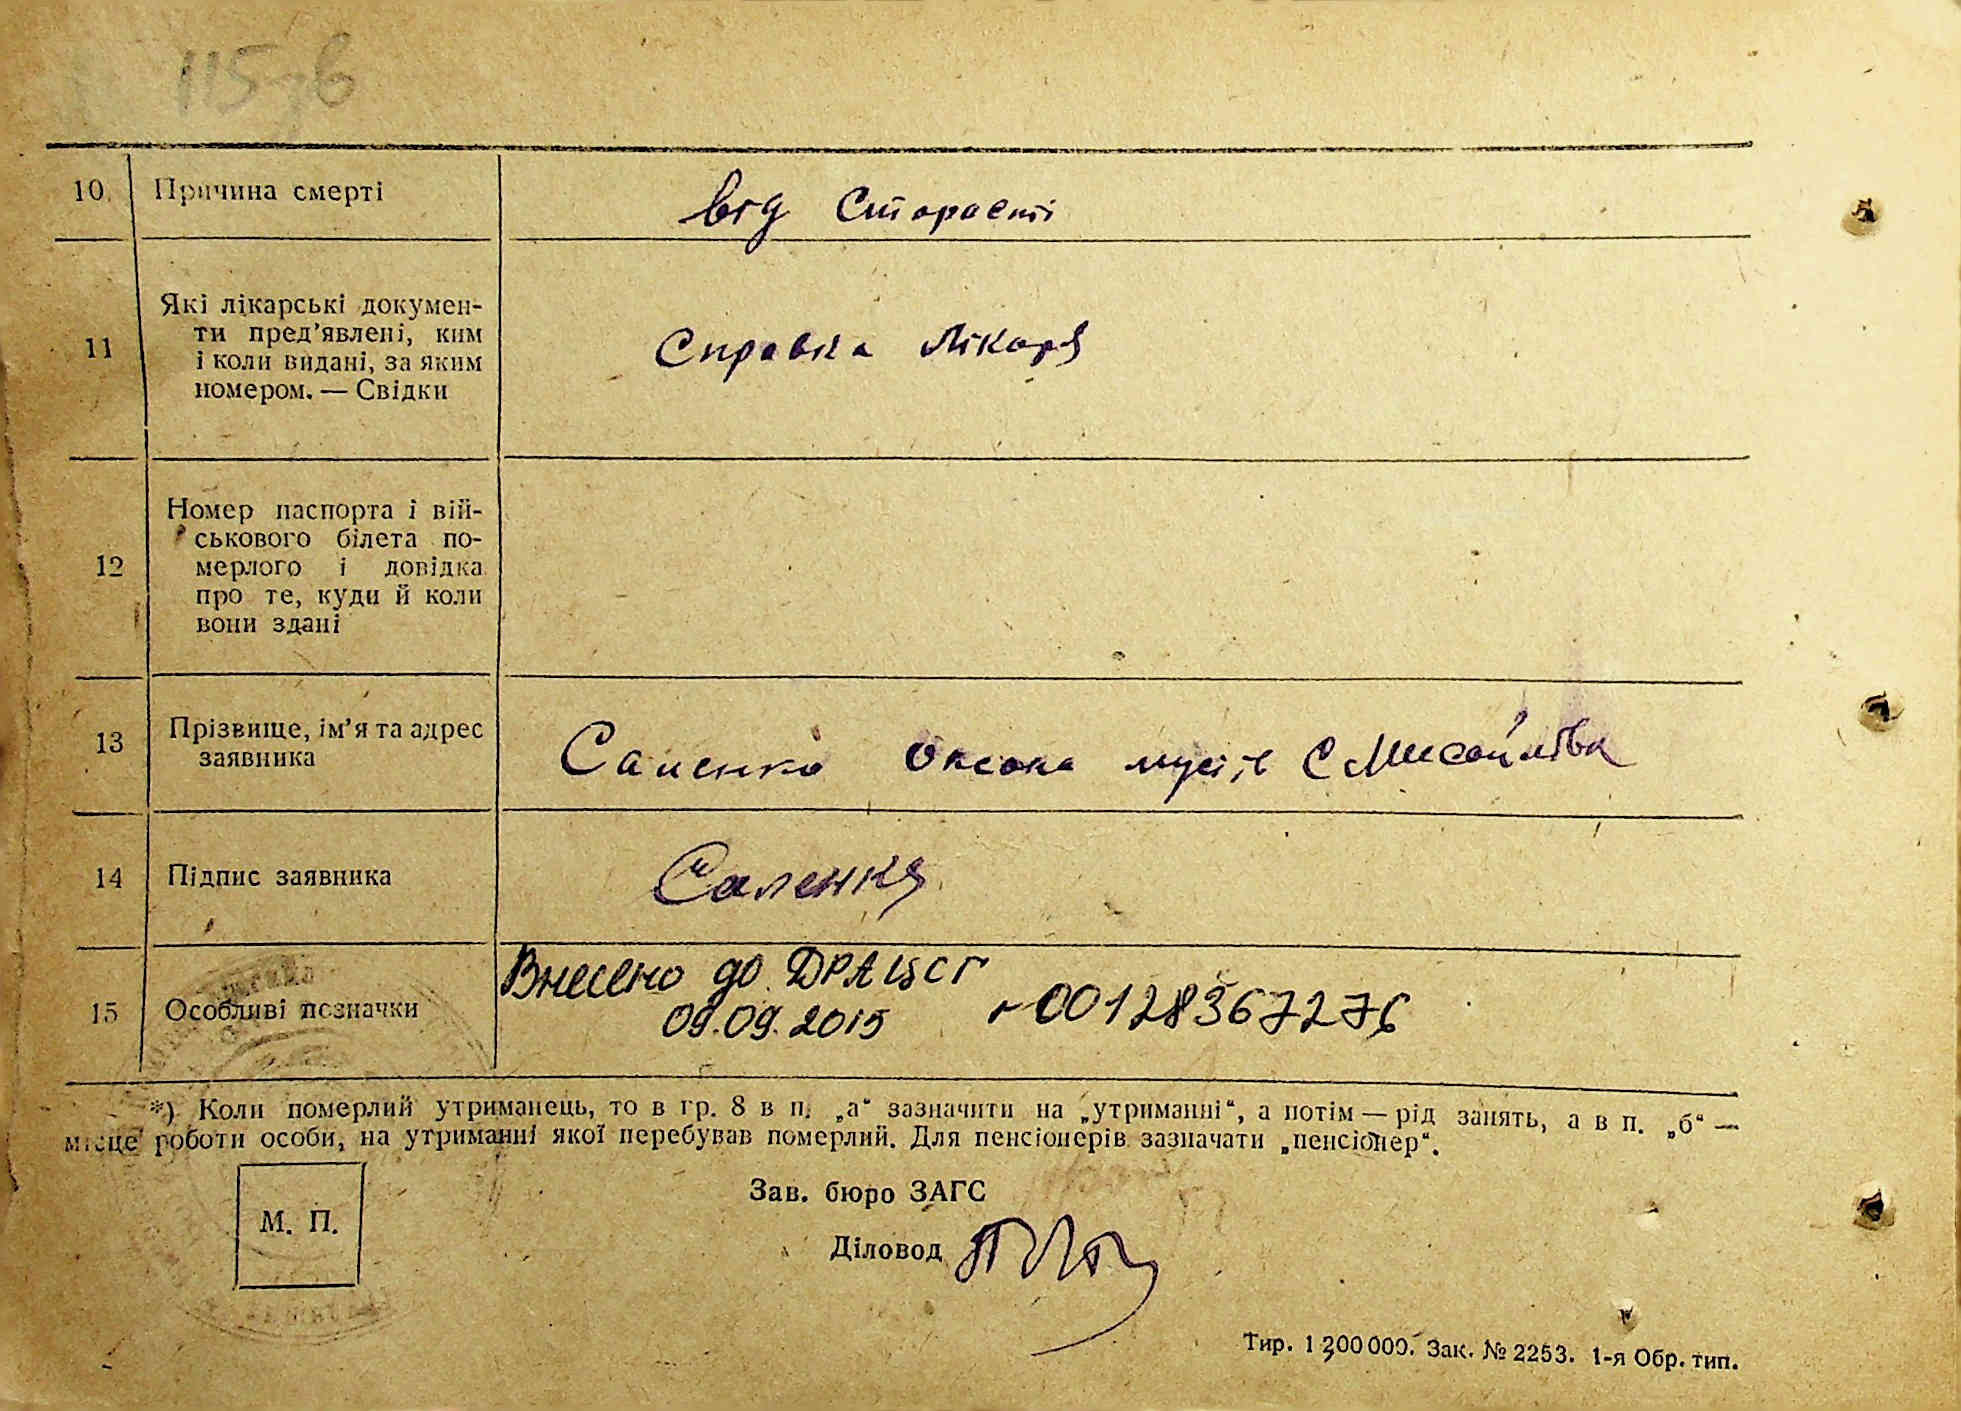 115зв
10. Причина смерті від старості
11 Які лікарські докумен-
ти пред’явлені, ким
і коли видані, за яким
номером. — Свідки
Справка лікаря
12 Номер паспорта і вій-
ськового білета по-
мерлого і довідка
про те, куди й коли
вони здані
13 Прізвище, ім’я та адрес
заявника
Саленко Оксана с Мисайлівка
14 Підпис заявника Саленко
15 Особливі позначки
Внесено до ДРАЦСГ
09.09.2015 00128367276
*) Коли померлий утриманець, то в гр. 8 в п. „а“ зазначити на „утриманні“, а потім — рід занять, а в п. „б“ —
місце роботи особи, на утриманні якої перебував померлий. Для пенсіонерів зазначати „пенсіонер“.
М. П.
Зав. бюро ЗАГС
Діловод
Тир. 1 200 000. Зак. № 2253. 1-я Обр. тип.